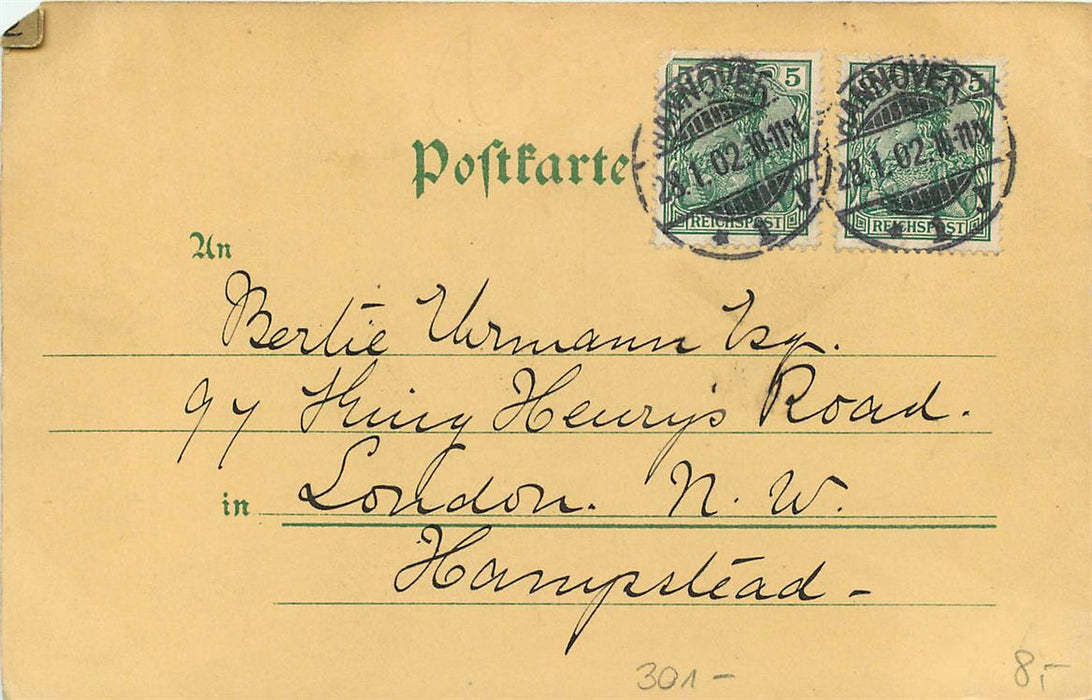 2
5 5
HANNOVER HANNOVER
28.1.02.10-11N. 28.1.02.10-11N.
* 1 y * 1 y
REICHSPOST REICHSPOST
Postkarte
An
Bertie Uhrmann Esq.
97 King Henry's Road.
in London. N. W.
Hampstead -
301-
8,-